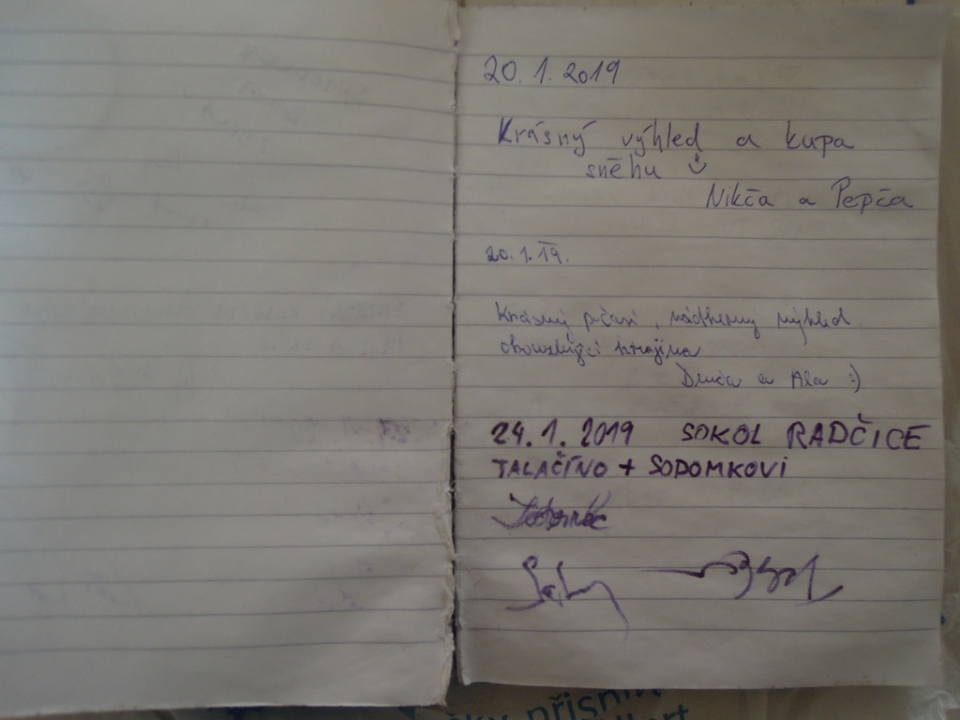 20. 1. 2019
Krásný výhled a kupa
sněhu
Nikča a Pepča
20. 1. 19.
Krásný počasí, nádherný výhled
okouzlující krajina
a Ala :)
24. 1. 2019 SOKOL RADČICE
TALAČÍNO + SODOMKOVI
přísnim